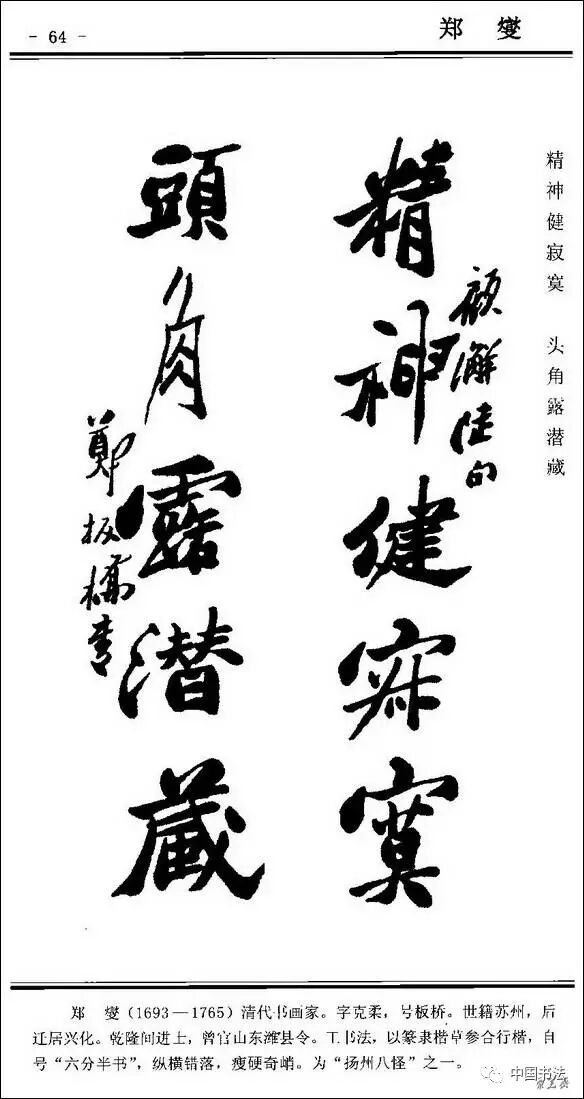 - 64 -
郑 燮
精神健寂寞 头角露潜藏
精神健寂寞
頭角露潛藏
鄭板橋書
郑 燮（1693—1765）清代书画家。字克柔，号板桥。世籍苏州，后
迁居兴化。乾隆间进士，曾官山东潍县令。工书法，以篆隶楷草参合行楷，自
号“六分半书”，纵横错落，瘦硬奇峭。为“扬州八怪”之一。
中国书法